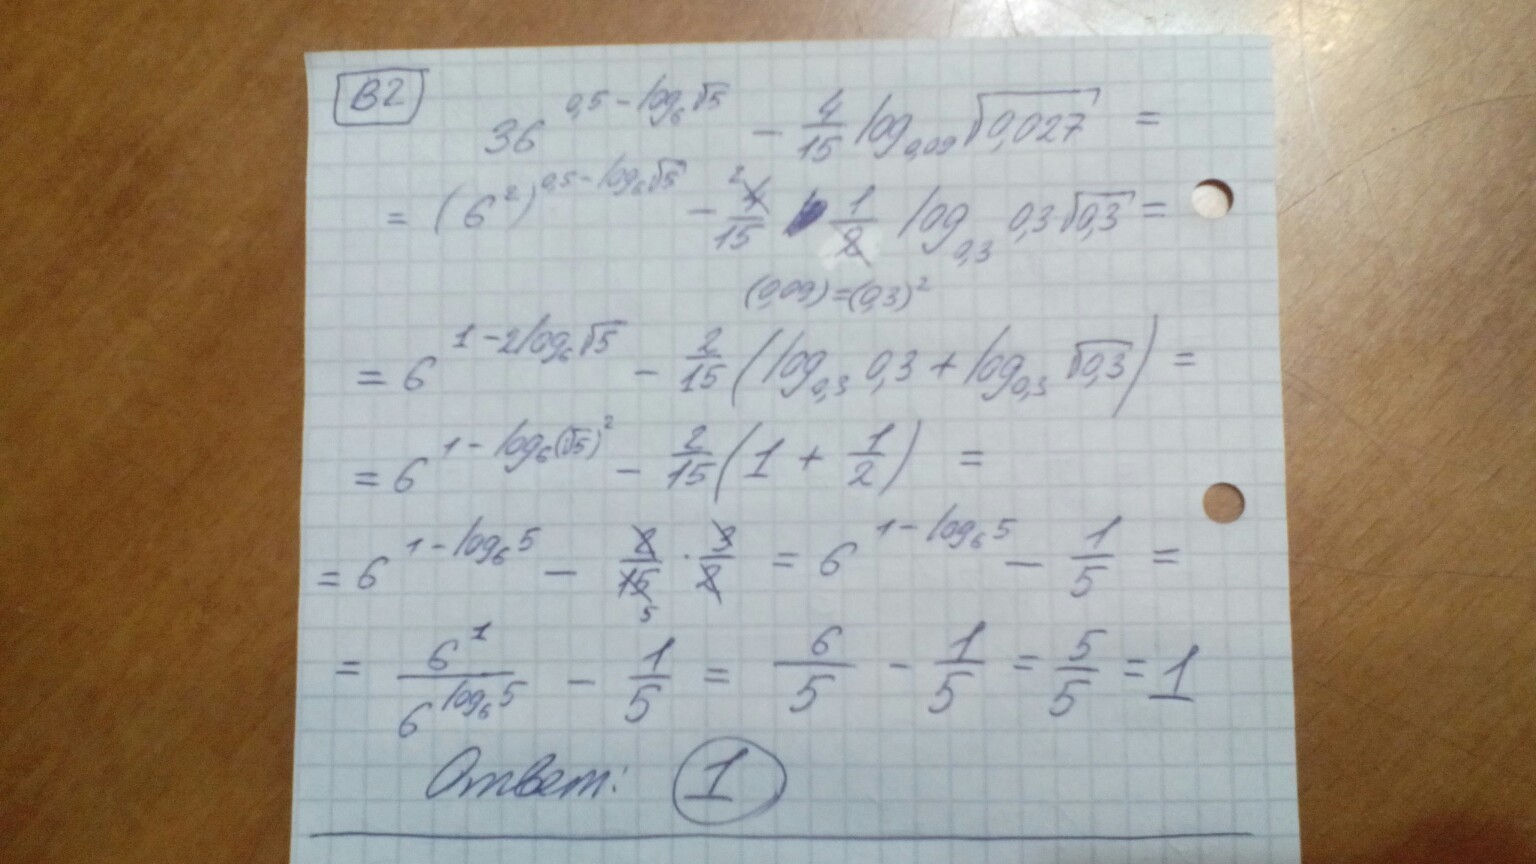 B2
36^(0,5 - log₆√5) - 4/15 log₀,₀₉ √0,027 =
= (6²)^(0,5 - log₆√5) - 4/15 1/2 log₀,₃ 0,3·√0,3 =
(0,09) = (0,3)²
= 6^(1 - 2log₆√5) - 2/15 (log₀,₃ 0,3 + log₀,₃ √0,3) =
= 6^(1 - log₆(√5)²) - 2/15 (1 + 1/2) =
= 6^(1 - log₆5) - 2/15 · 3/2 = 6^(1 - log₆5) - 1/5 =
= 6¹/6^(log₆5) - 1/5 = 6/5 - 1/5 = 5/5 = 1
Ответ: 1